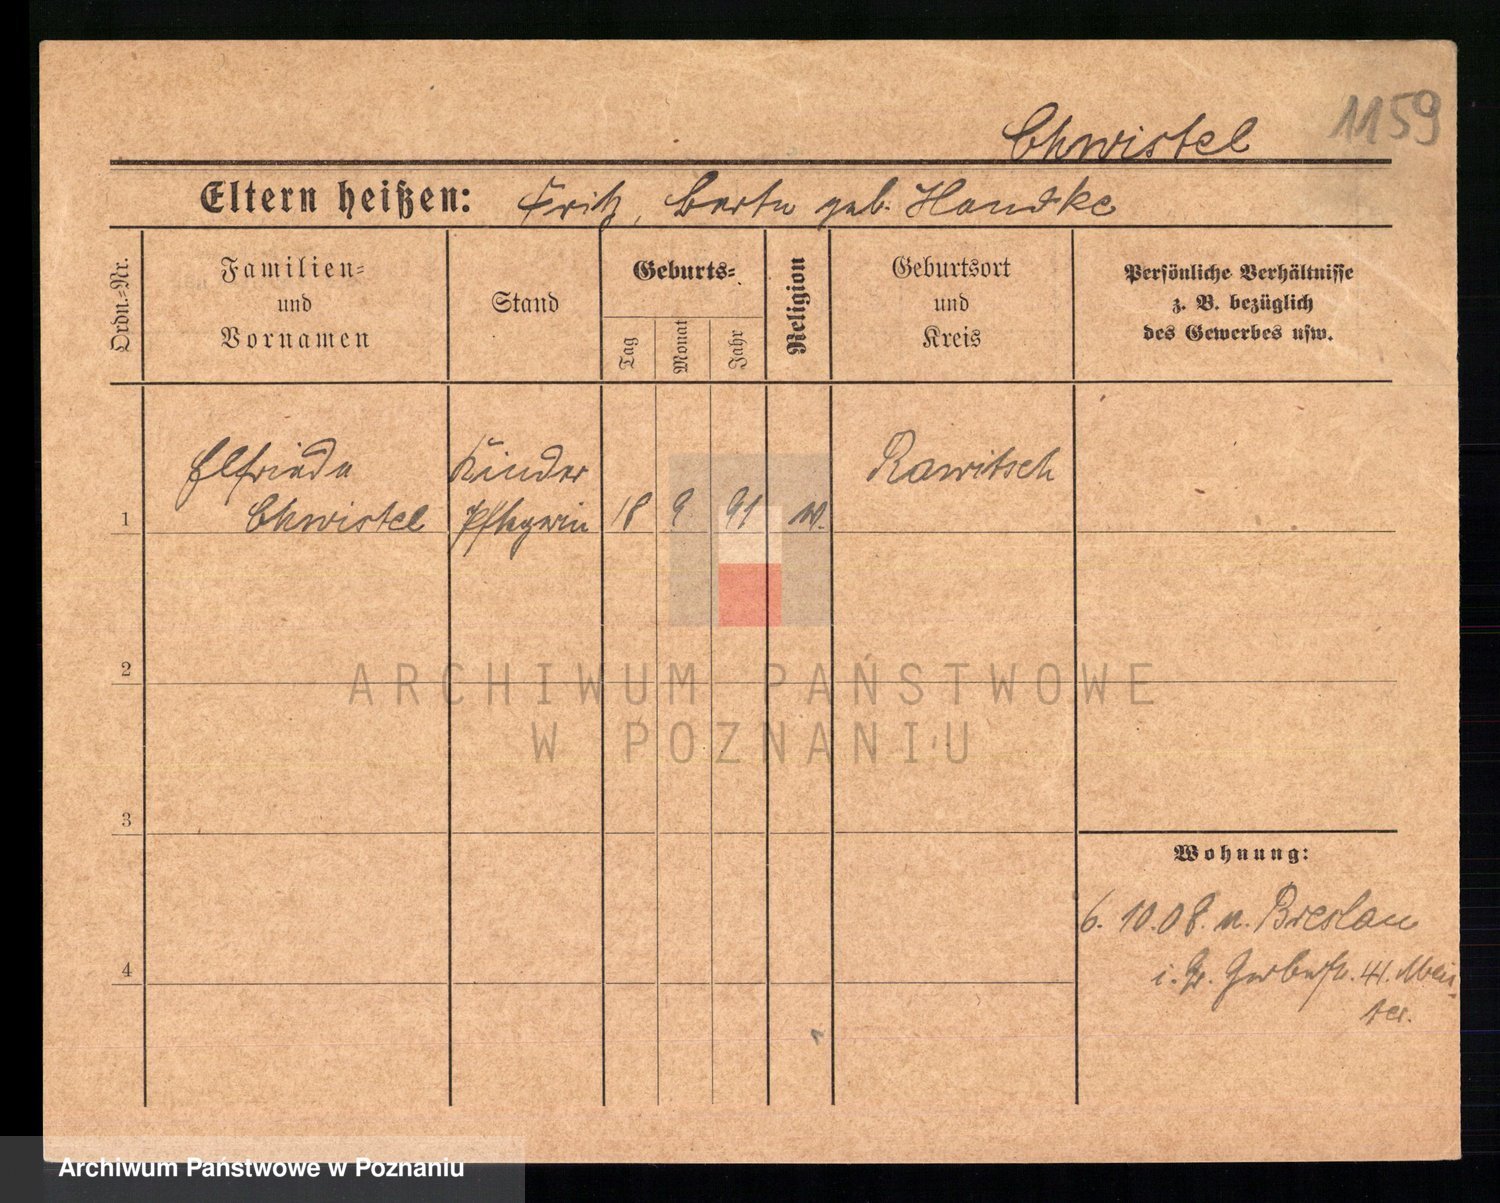 1159
Chwistel
Eltern heißen: Fritz, Berta geb. Handke
Ordn.=Nr.
Familien=
und
Vornamen
Stand
Geburts=
Tag
Monat
Jahr
Religion
Geburtsort
und
Kreis
Persönliche Verhältnisse
z. B. bezüglich
des Gewerbes usw.
Elfriede Kinder Rawitsch
1 Chwistel Pflegerin 18 9 91
2
3
4
Wohnung:
6. 10. 08. n. Breslau
41. Meis-
ter.
ARCHIWUM PAŃSTWOWE
W POZNANIU
Archiwum Państwowe w Poznaniu